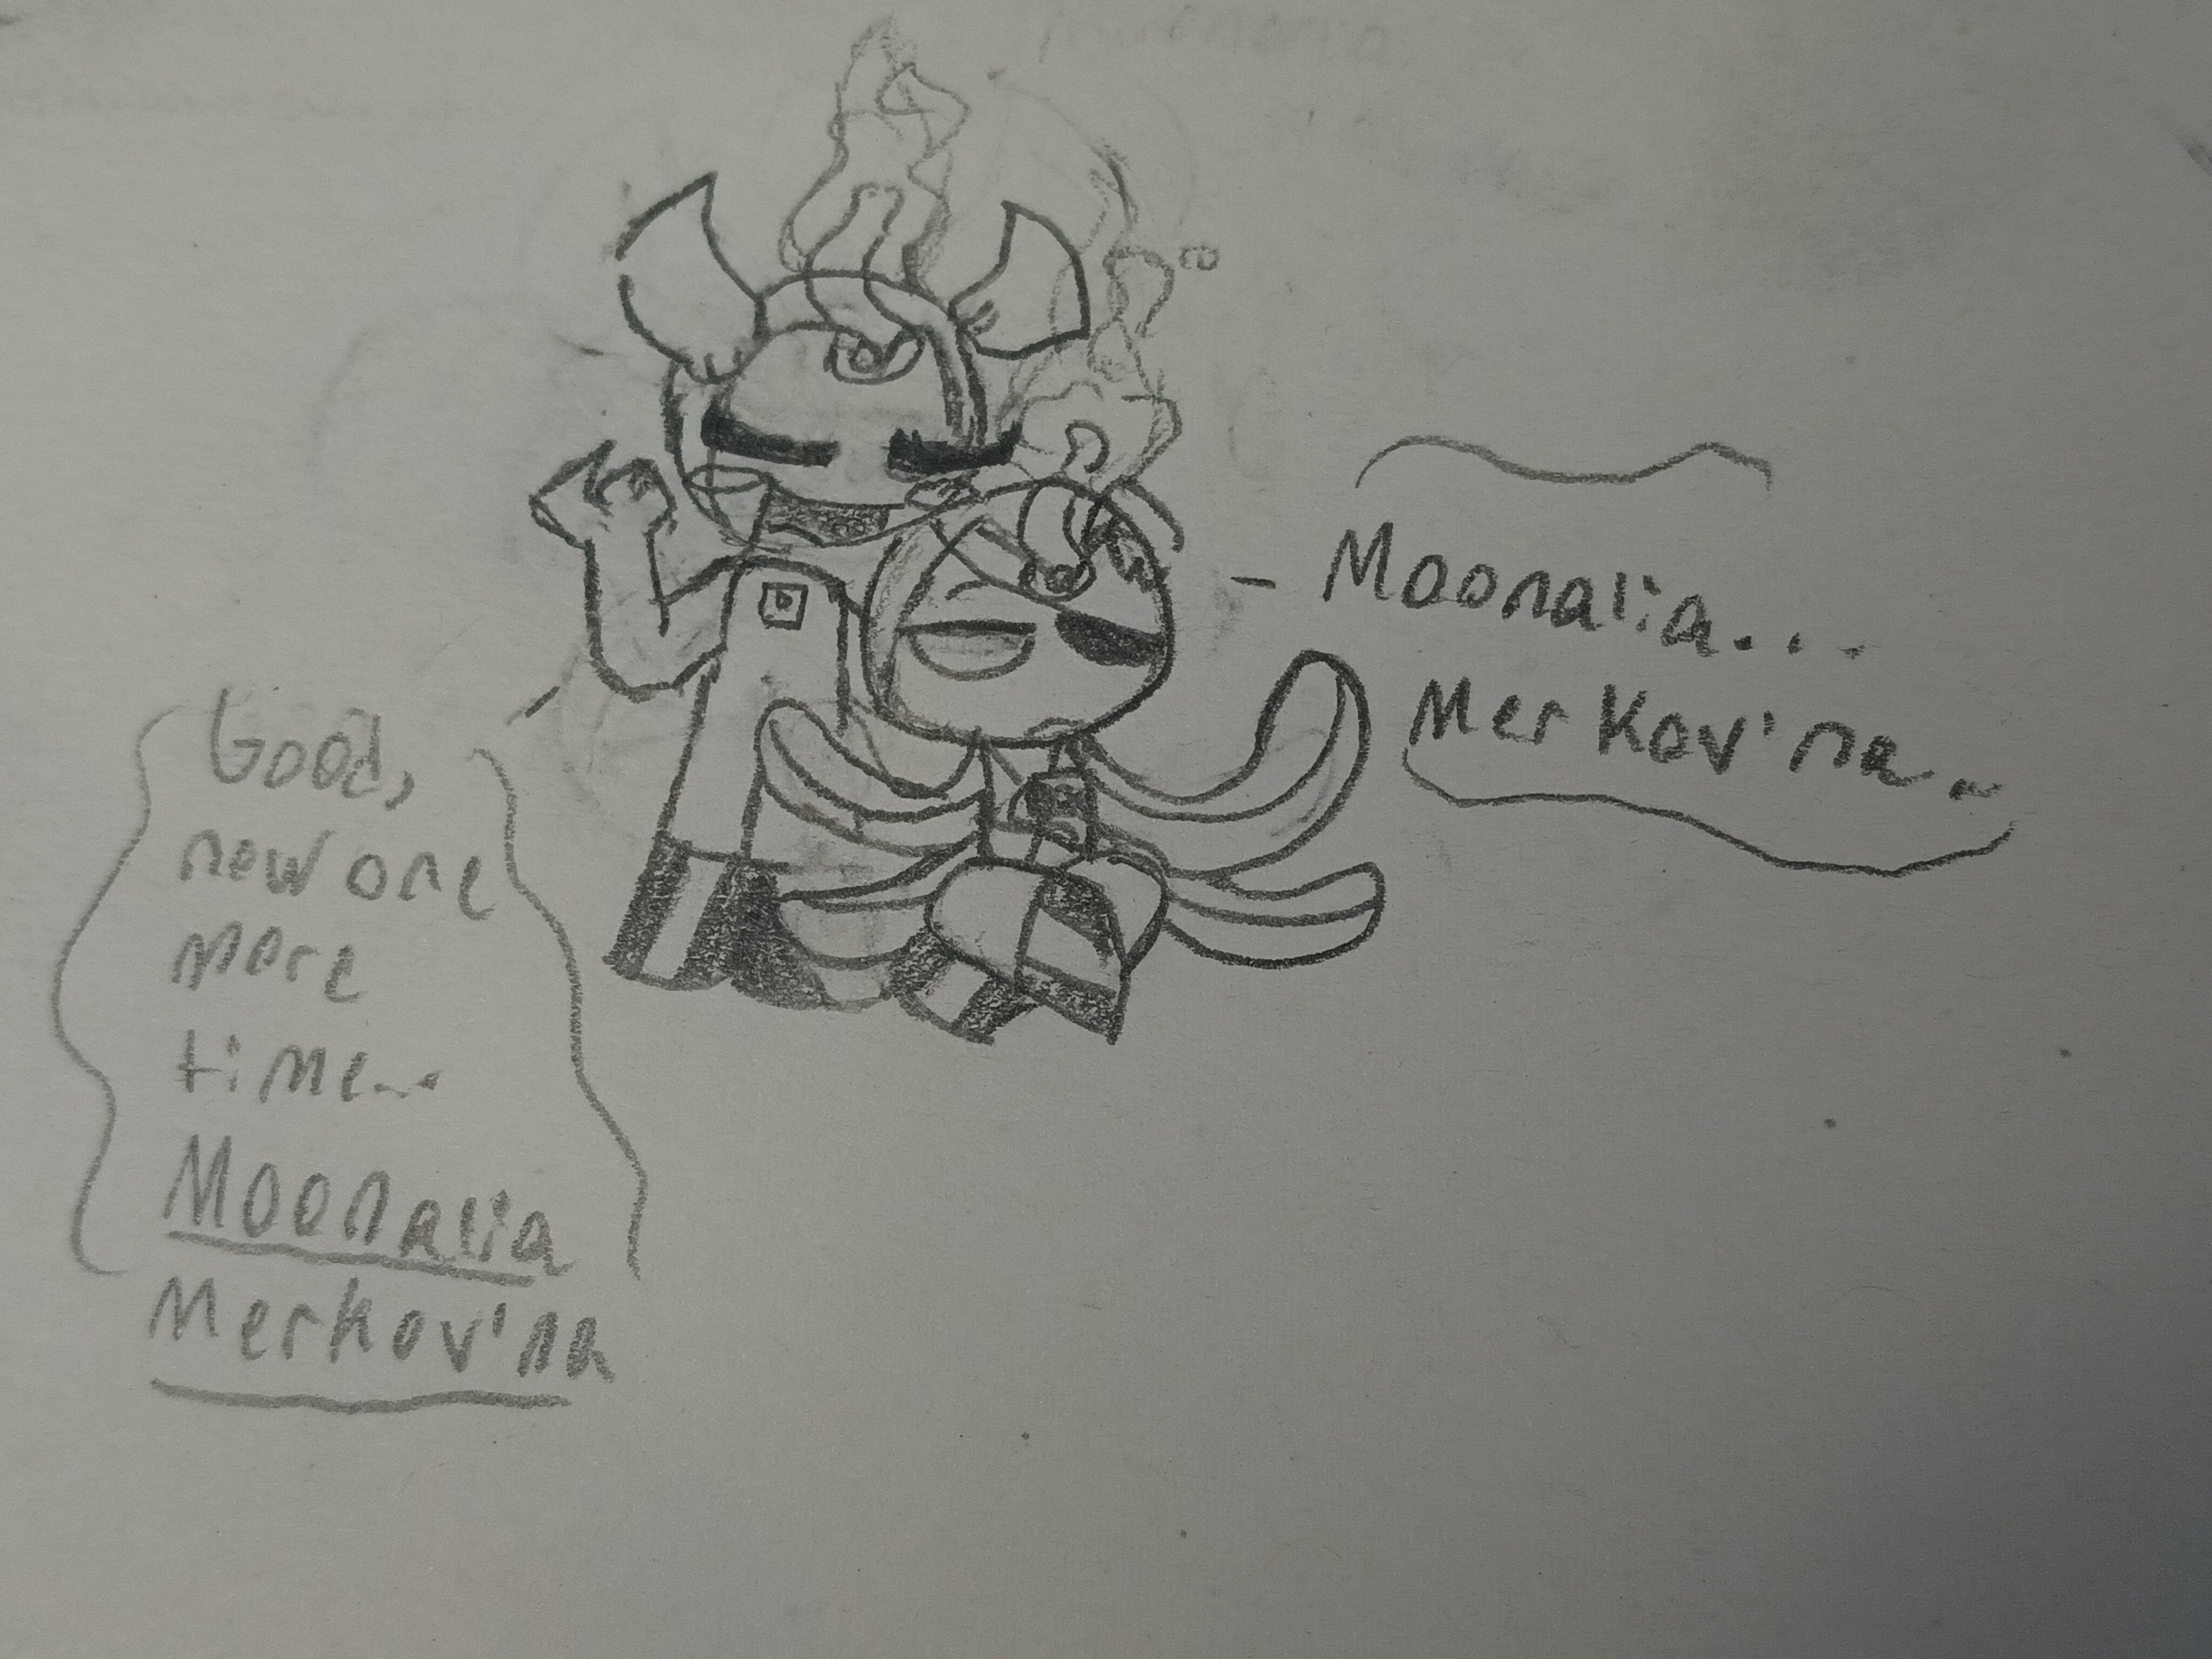 Moonalia...
Merkov'na..
Good,
now one
more
time...
Moonalia
Merkov'na